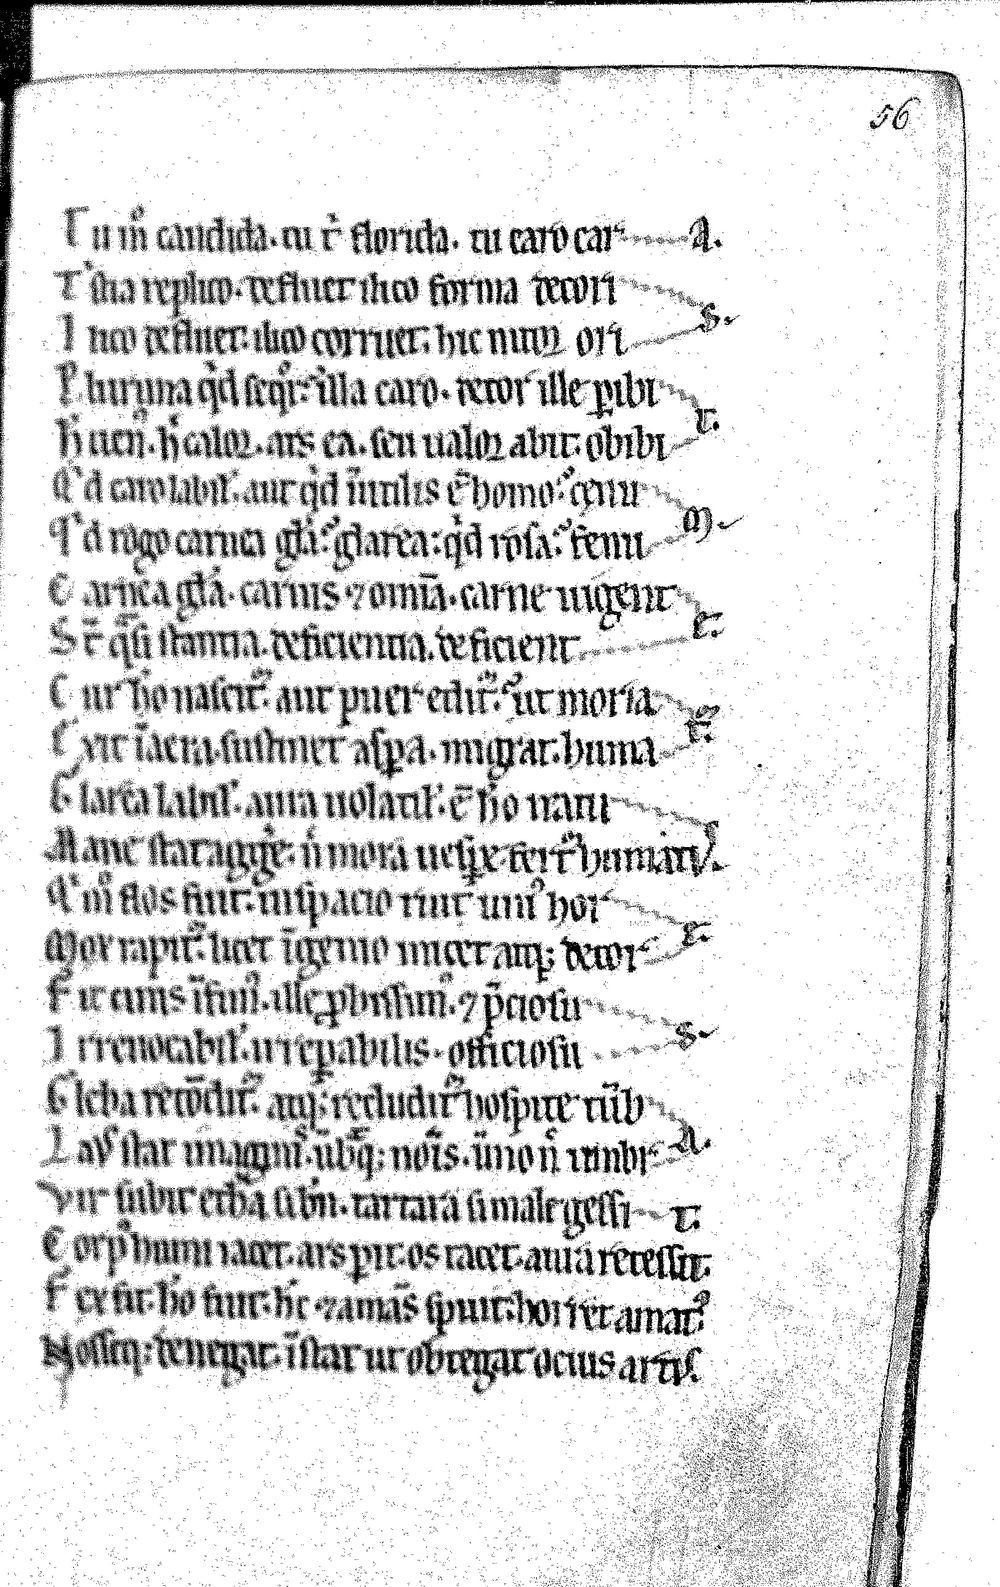 56
Tu m̊ candida. tu r̓ florida. tu caro car A.
T̓ſtia replico. defluet ilico forma decori
Ilico defluet: ilico corruet: hic nitor ori S.
Plurima qͥd ſeqͥr: illa caro. decor ille ꝑibi
calor. ars ea. ſeu ualor abit: obibi T.
Qͥd caro labil̓. aut qͥd inutilis ē homo: cenu
Qͥd rogo carnea gl̄a: glarea: qͥd roſa: fenu M.
Carnea gl̄a. carnis ⁊ omīa. carne uigent
St̄ qͣſi ſtantia. deficientia. deficient E.
Cur ho naſcit᷑. aut puer edit᷑. ut moria
Exit ī aera. ſuſtinet aſꝑa. migrat. huma t᷑.
Glarea labil̓. aura uolatil̓. ē ho natu
Mane ſtat aggere. n̄ mora ueſꝑe fert᷑ humatus.
Qͥ m̊ flos fuit: in ſpacio ruit uniꝰ hor
Mox rapit᷑. licet īgenio micet atqꝫ decor E.
Fit cinis īfimꝰ. ille ꝓbiſſimꝰ. ⁊ p̄cioſu
Irreuocabil̓. irreꝑabilis. officioſu S.
Gleba recōdit᷑. atqꝫ recludit᷑ hoſpite tūb
Laus ſtat imagīs. ubiqꝫ noīs. īmo n̄ umbr A.
Vir ſubit ſi bn̄. tartara ſi male geſſi T.
Corpꝰ humi iacet. ars ꝑit: os tacet. aura receſſit.
Fex fit: ho fuit: hc̄ ⁊ amās ſpuit: horret amatꝰ
Noſſeqꝫ denegat. īſtat ut obtegat ocius artus.